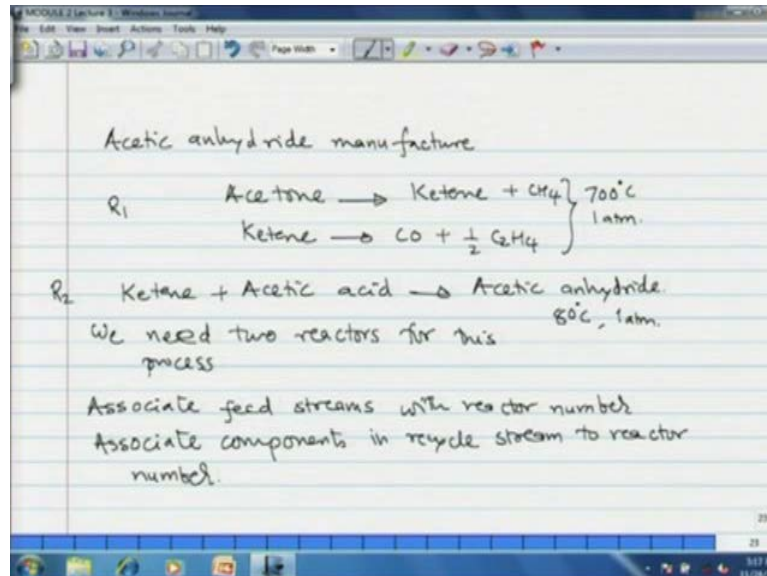 MODULE 2 Lecture 3 - Windows Journal
File Edit View Insert Actions Tools Help
Page Width
Acetic anhydride manufacture
R1 Acetone → Ketene + CH4 } 700°C
Ketene → CO + 1/2 C2H4 1 atm.
R2 Ketene + Acetic acid → Acetic anhydride.
80°C, 1 atm.
We need two reactors for this
process
Associate feed streams with reactor number
Associate components in recycle stream to reactor
number.
23
23